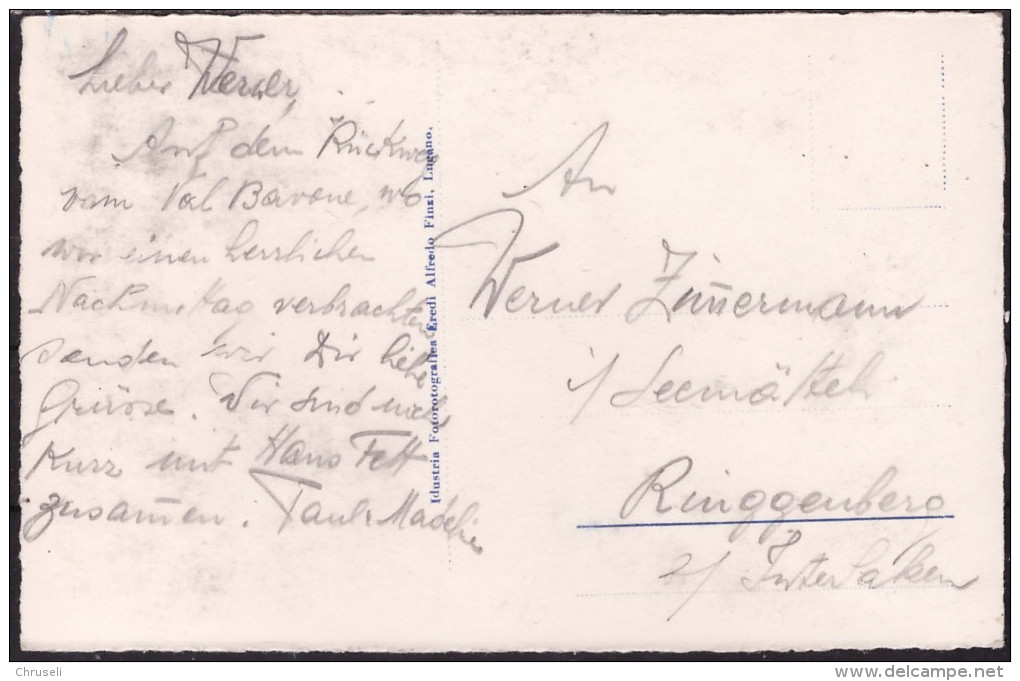 Lieber Werner,
Auf dem Rückweg
vom Val Bavone, wo
wir einen herrlichen
Nachmittag verbrachten
senden wir Dir liebe
Grüsse. Wir sind noch
kurz mit Hans Fett
zusam̅en. Paul + Madelie
Idustria Fotorotografica Eredi Alfredo Finzi, Lugano.
An
Werner Zim̅ermann
i/ Seemätteli
Ringgenberg
a/ Interlaken
Chruseli
delcampe.net